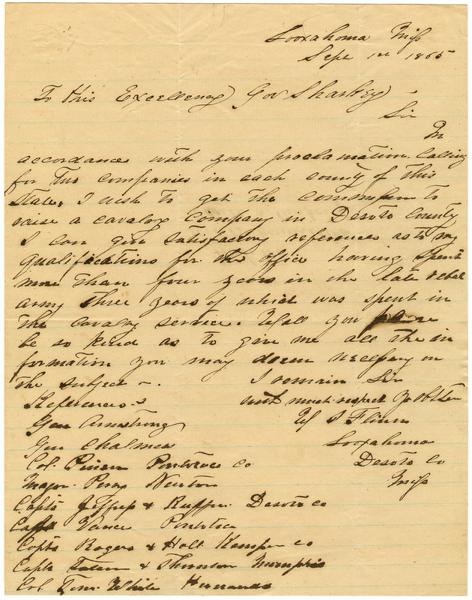 Looxahoma Miss
Sept 1st 1865
To His Excellency Gov Sharkey
Sir
In
accordance with your proclamation Calling
for two companies in each county of this
State, I wish to get the commission to
raise a cavalry Company in Desoto County
I can give Satisfactory references as to my
qualifications for the office having spent
more than four years in the late rebel
army three years of which was spent in
the cavalry service. Will you please
be so kind as to give me all the in
formation you may deem necessary on
the subject. I remain Sir
References with much respect Yr obt Ser
Gen Armstrong
Gen Chalmers Looxahoma
Col. Pinson Pontotoc Co Desoto Co
Major Perry Newton Miss
Capts & Desoto co
Capt Vance
Capts Rogers & Holt Kemper co
Capts & Thornton Memphis
Col Tom White Hernando